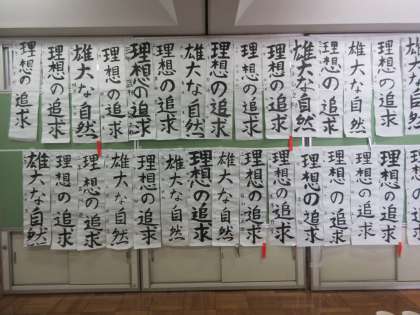 雄大な自然
理想の追求
雄大な自然
理想の追求
雄大な自然
理想の追求
理想の追求
理想の追求
雄大な自然
理想の追求
理想の追求
理想の追求
雄大な自然
理想の追求
理想の追求
理想の追求
理想の追求
理想の追求
理想の追求
理想の追求
理想の追求
理想の追求
雄大な自然
理想の追求
雄大な自然
理想の追求
雄大な自然
理想の追求
理想の追求
雄大な自然